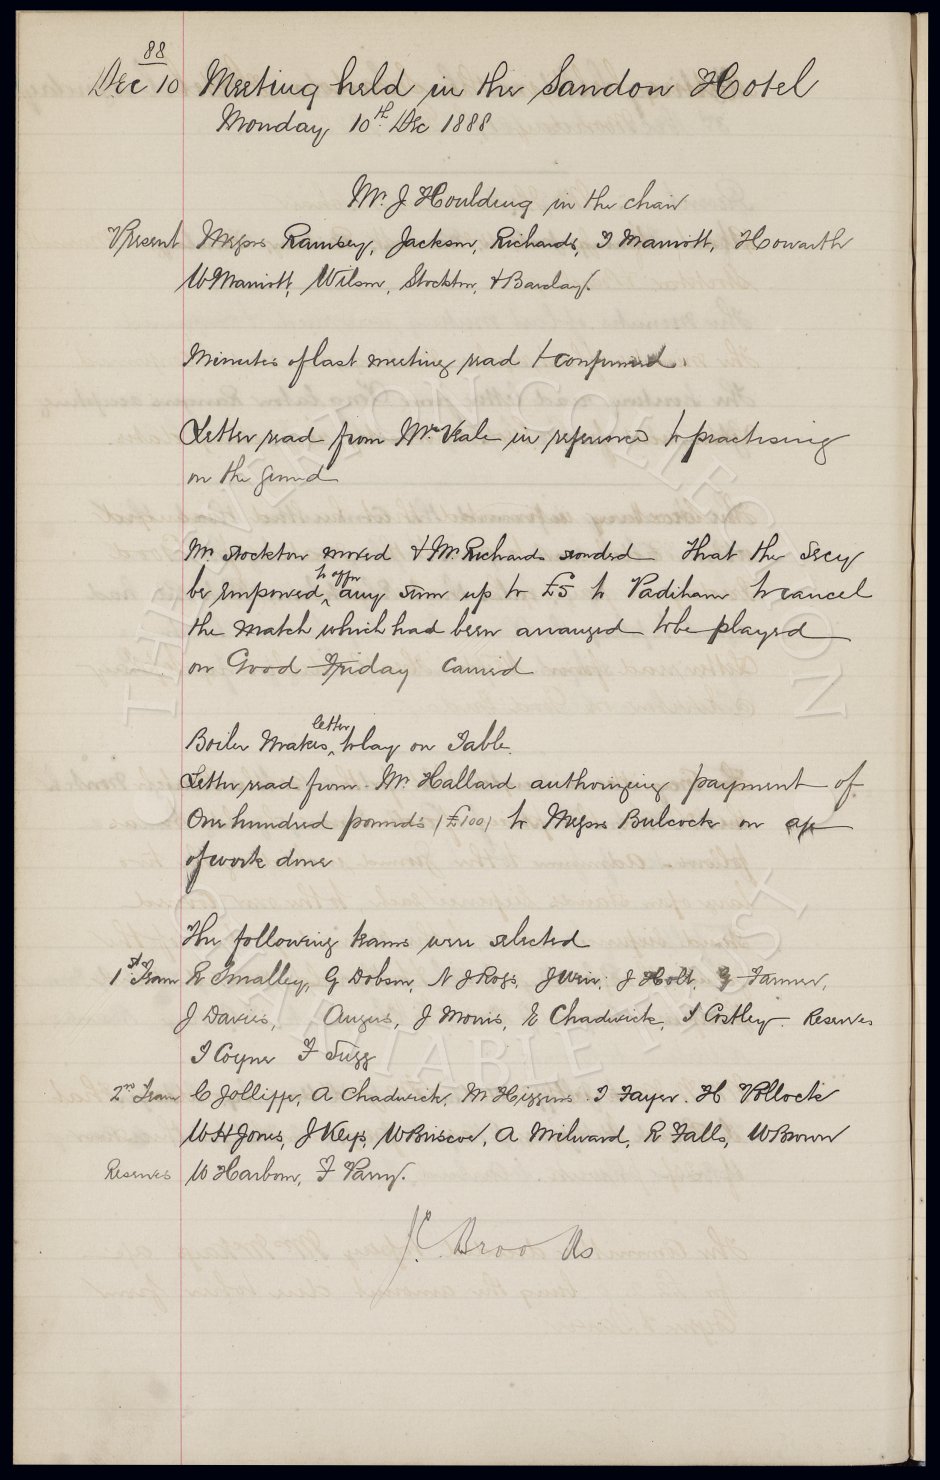 88
Dec 10 Meeting held in the Sandon Hotel
Monday 10th Dec 1888
Mr. J Houlding in the chair
Present Messrs Ramsey, Jackson, Richards, T Marriott, Howarth
W Marriott, Wilson, Stockton, & Barclay.
Minutes of last meeting read & confirmed.
Letter read from Mr. Veale in reference to practising
on the ground
Mr Stockton moved & Mr Richards seconded that the Secy
be empowered to offer any sum up to £5 to Padiham to cancel
the match which had been arranged to be played
on Good Friday carried
Boiler Makers letter to lay on Table.
Letter read from Mr. Hallard authorizing payment of
One hundred pounds (£100) to Messrs Bulcock on a/c
of work done
The following teams were selected
1st Team R Smalley, G Dobson, N J Ross, J Weir, J Holt, G Farmer,
J Davies, Angus, J Morris, E Chadwick, T Costley. Reserves
T Coyne F Sugg
2nd Team C Jolliffe, A Chadwick, M Higgins. T Fayer. H Pollock
W H Jones, J Keys, W Briscoe, A Milward, R Falls, W Brown
Reserves W Harbour, F Parry.
J.C. Brooks
THE EVERTON COLLECTION
CHARITABLE TRUST